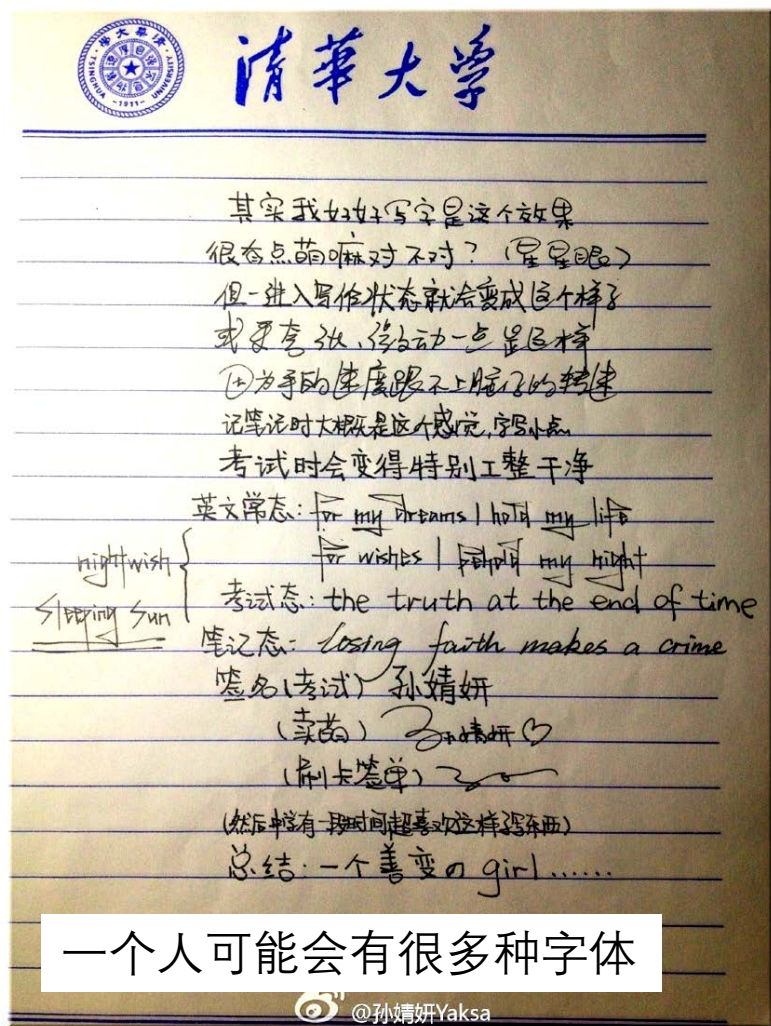 清華大学
TSINGHUA UNIVERSITY
-1911-
其实我好好写字是这个效果
很有点萌嘛对不对？（星星眼）
但一进入写作状态就会变成这个样子
或更夸张、微动一点是这样
因为手的速度跟不上脑子的转速
记笔记时大概是这个感觉，字写小点
考试时会变得特别工整干净
英文常态：for my dreams I hold my life
for wishes I behold my night
nightwish
sleeping sun
考试态：the truth at the end of time
笔记态：losing faith makes a crime
签名（考试）孙婧妍
（卖萌）孙婧妍♡
（刷卡签单）
（然后中学有一段时间超喜欢这样写东西）
总结：一个善变の girl……
一个人可能会有很多种字体
@孙婧妍Yaksa